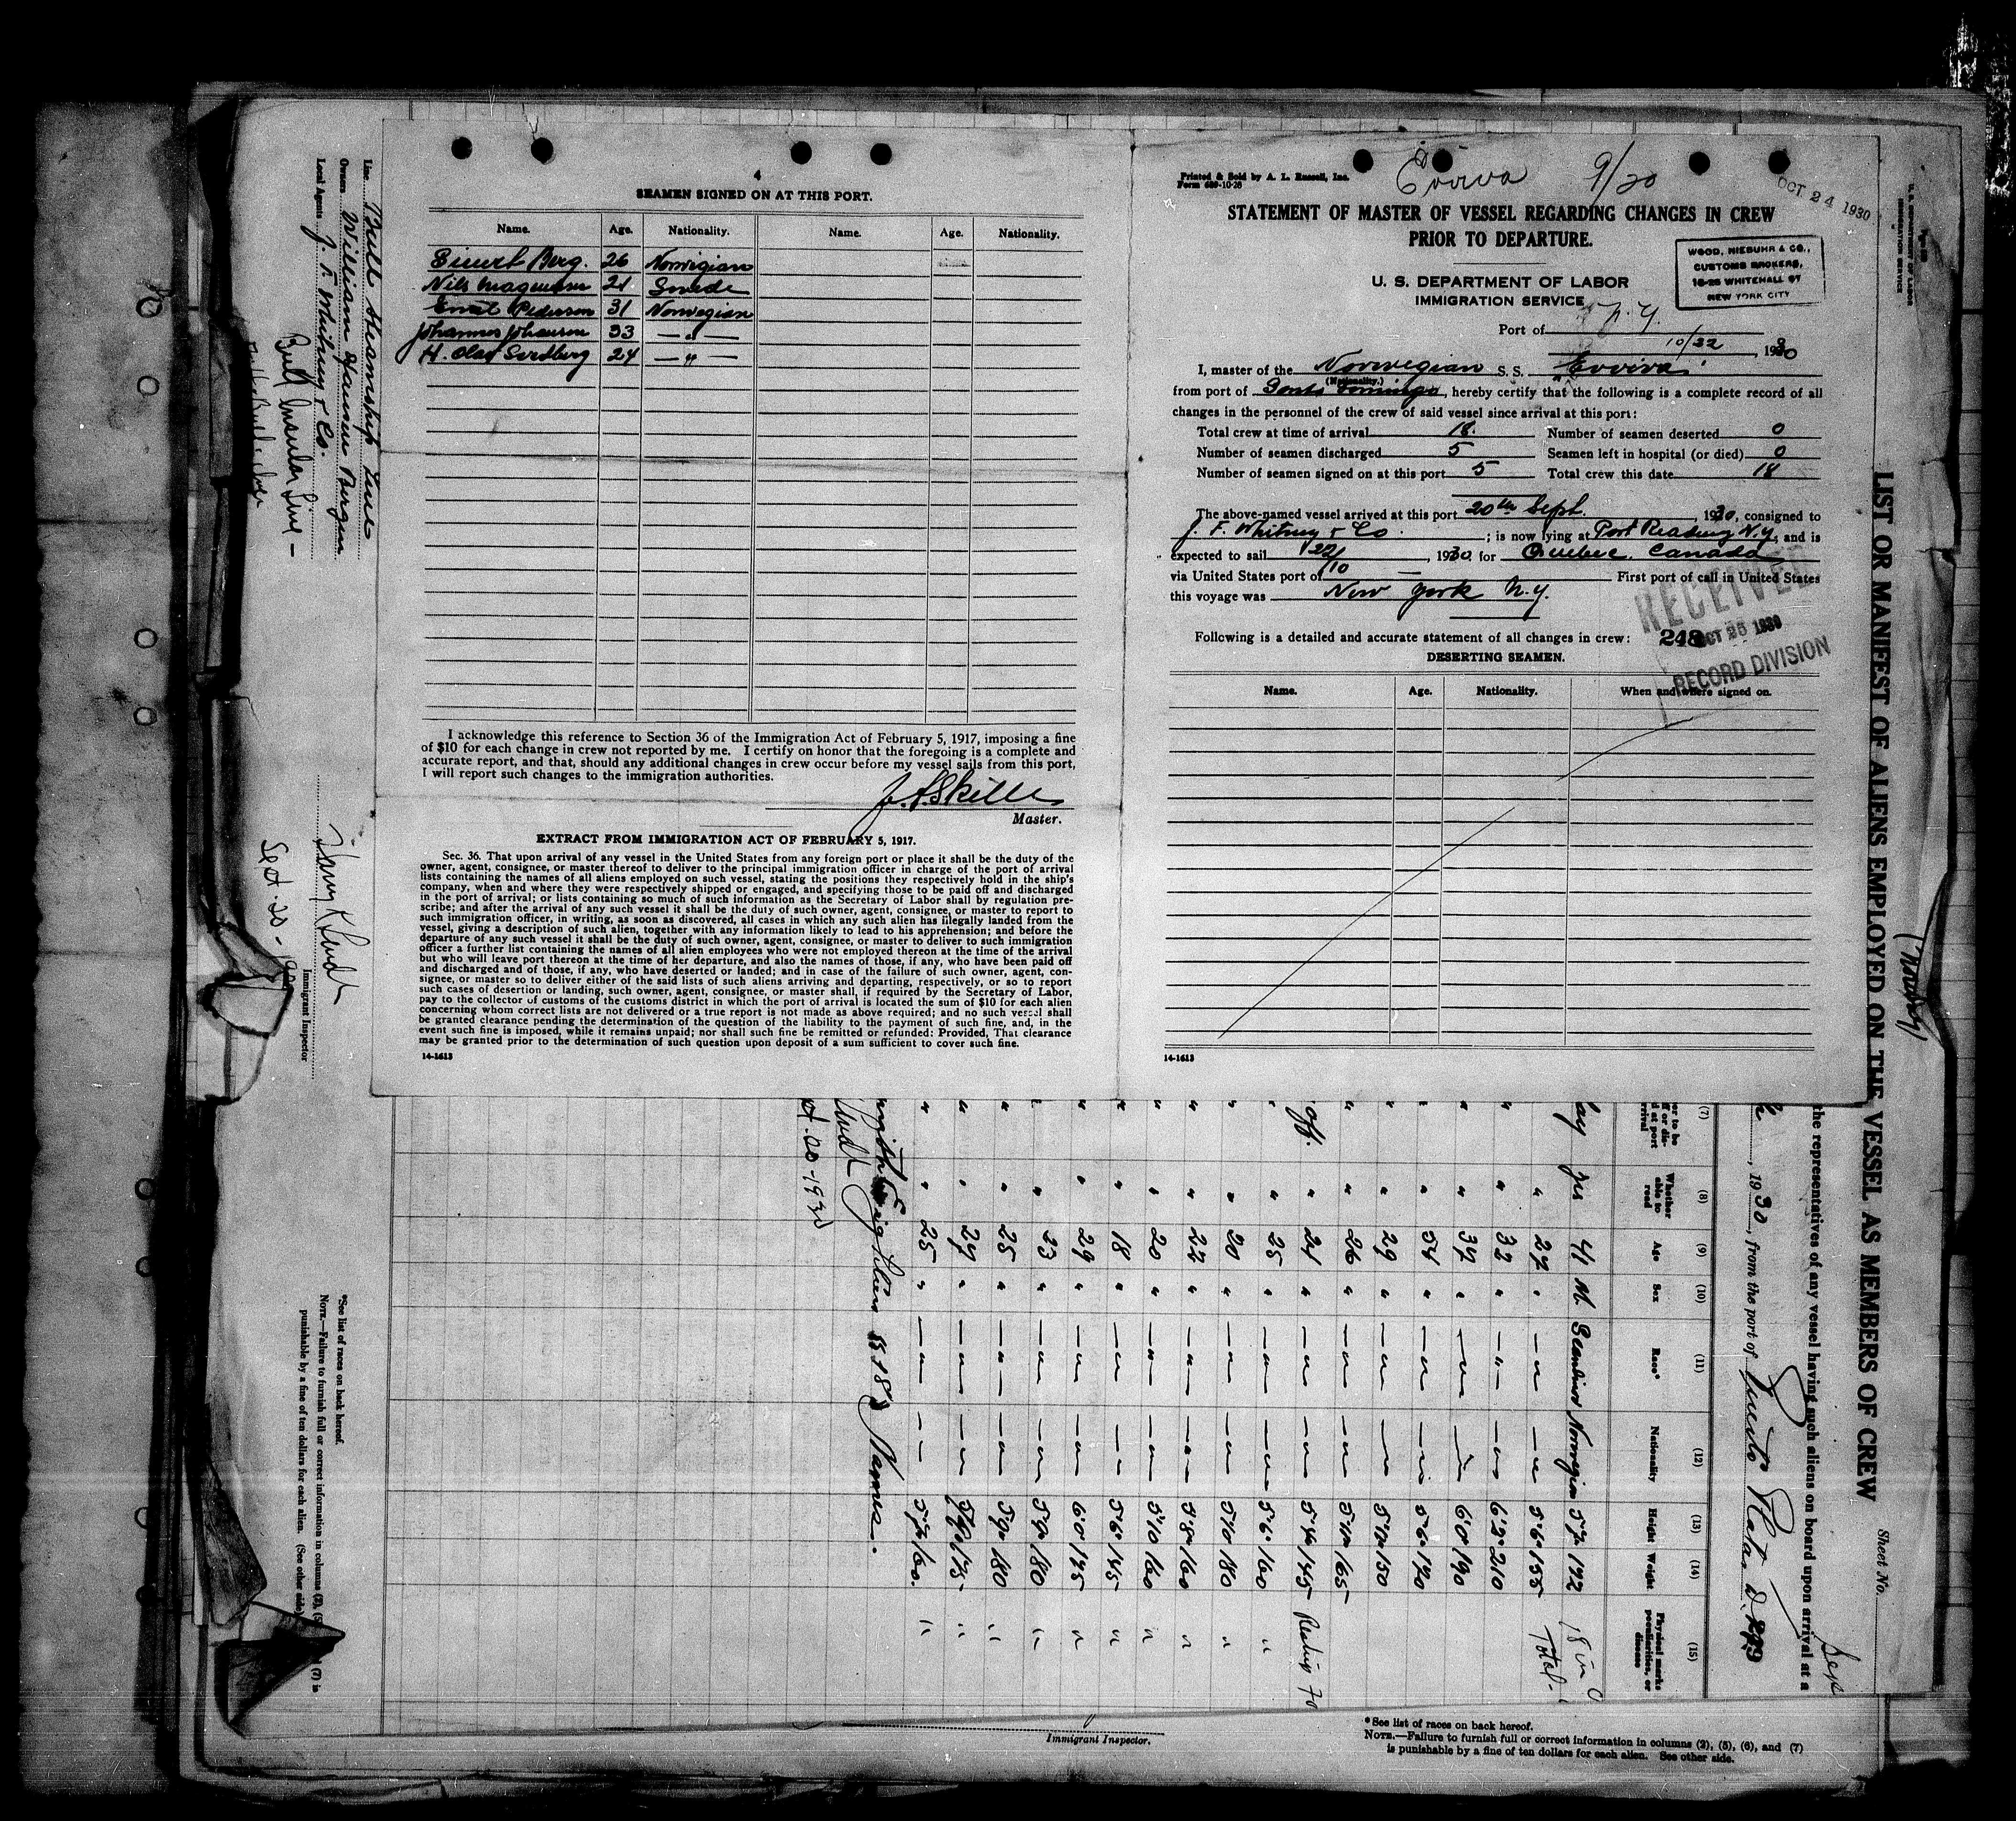 4
SEAMEN SIGNED ON AT THIS PORT.
Name. Age. Nationality. Name. Age. Nationality.
Berg. 26 Norwegian
Nils Magnuson 21 Swede
Ernst Pederson 31 Norwegian
Johannes Johansen 33 — " —
H. Olav 24 — " —
I acknowledge this reference to Section 36 of the Immigration Act of February 5, 1917, imposing a fine
of $10 for each change in crew not reported by me. I certify on honor that the foregoing is a complete and
accurate report, and that, should any additional changes in crew occur before my vessel sails from this port,
I will report such changes to the immigration authorities.
Master.
EXTRACT FROM IMMIGRATION ACT OF FEBRUARY 5, 1917.
Sec. 36. That upon arrival of any vessel in the United States from any foreign port or place it shall be the duty of the
owner, agent, consignee, or master thereof to deliver to the principal immigration officer in charge of the port of arrival
lists containing the names of all aliens employed on such vessel, stating the positions they respectively hold in the ship's
company, when and where they were respectively shipped or engaged, and specifying those to be paid off and discharged
in the port of arrival; or lists containing so much of such information as the Secretary of Labor shall by regulation pre-
scribe; and after the arrival of any such vessel it shall be the duty of such owner, agent, consignee, or master to report to
such immigration officer, in writing, as soon as discovered, all cases in which any such alien has illegally landed from the
vessel, giving a description of such alien, together with any information likely to lead to his apprehension; and before the
departure of any such vessel it shall be the duty of such owner, agent, consignee, or master to deliver to such immigration
officer a further list containing the names of all alien employees who were not employed thereon at the time of the arrival
but who will leave port thereon at the time of her departure, and also the names of those, if any, who have been paid off
and discharged and of those, if any, who have deserted or landed; and in case of the failure of such owner, agent, con-
signee, or master so to deliver either of the said lists of such aliens arriving and departing, respectively, or so to report
such cases of desertion or landing, such owner, agent, consignee, or master shall, if required by the Secretary of Labor,
pay to the collector of customs of the customs district in which the port of arrival is located the sum of $10 for each alien
concerning whom correct lists are not delivered or a true report is not made as above required; and no such vessel shall
be granted clearance pending the determination of the question of the liability to the payment of such fine, and, in the
event such fine is imposed, while it remains unpaid; nor shall such fine be remitted or refunded: Provided, That clearance
may be granted prior to the determination of such question upon deposit of a sum sufficient to cover such fine.
14-1613
Printed & Sold by A. L. Russell, Inc.
Form 689-10-28
Evviva 9/20
OCT 24 1930
STATEMENT OF MASTER OF VESSEL REGARDING CHANGES IN CREW
PRIOR TO DEPARTURE.
WOOD, NIEBUHR & CO.,
CUSTOMS BROKERS,
16-26 WHITEHALL ST
NEW YORK CITY
U. S. DEPARTMENT OF LABOR
IMMIGRATION SERVICE
Port of N. Y.
10/22, 1930
I, master of the Norwegian S. S. Evviva
(Nationality.)
from port of Santo Domingo, hereby certify that the following is a complete record of all
changes in the personnel of the crew of said vessel since arrival at this port:
Total crew at time of arrival 18. Number of seamen deserted 0
Number of seamen discharged 5 Seamen left in hospital (or died) 0
Number of seamen signed on at this port 5 Total crew this date 18
The above-named vessel arrived at this port 20th Sept. 1930, consigned to
J. F. Whitney & Co. ; is now lying at Port Reading N.Y, and is
expected to sail 22/10, 1930 for Quebec. Canada
via United States port of — First port of call in United States
this voyage was New York N.Y.
RECEIVED
Following is a detailed and accurate statement of all changes in crew: 248
OCT 25 1930
RECORD DIVISION
DESERTING SEAMEN.
Name. Age. Nationality. When and where signed on.
14-1613
Line Bull Steamship Line
Owners William Hansen Bergen
Local Agents J. F. Whitney & Co.
Bull Insular Line -
Immigrant Inspector
Sept. 20 -
LIST OR MANIFEST OF ALIENS EMPLOYED ON THE VESSEL AS MEMBERS OF CREW
Sheet No.
U. S. DEPARTMENT OF LABOR
IMMIGRATION SERVICE
the representatives of any vessel having such aliens on board upon arrival at a
, 1930, from the port of Puerto Plata D.
(7) (8) (9) (10) (11) (12) (13) (14) (15)
Whether able to read Age Sex Race* Nationality Height Weight Physical marks, peculiarities, or disease
yes 41 M. Norwegian 5'7 192
" 27 " 5'6 155
" 32 " 6'2 210
" 37 " 6'0 190
" 54 " 5'6 190
" 29 " 150
" 26 " 165
off. " 21 " 5'4 145
" 25 " 5'6 160
" 20 " 5'10 180
" 22 " 5'8 160
" 20 " 5'10 160
" 18 " 5'6 145
" 29 " 6'0 145
" 23 " 5'9 180
" 25 " 5'9 180
" 27 " 175
" 25 " 5'7 160.
*See list of races on back hereof.
NOTE.—Failure to furnish full or correct information in columns
punishable by a fine of ten dollars for each alien. (See other side)
Immigrant Inspector.
*See list of races on back hereof.
NOTE.—Failure to furnish full or correct information in columns (2), (5), (6), and (7)
is punishable by a fine of ten dollars for each alien. See other side.